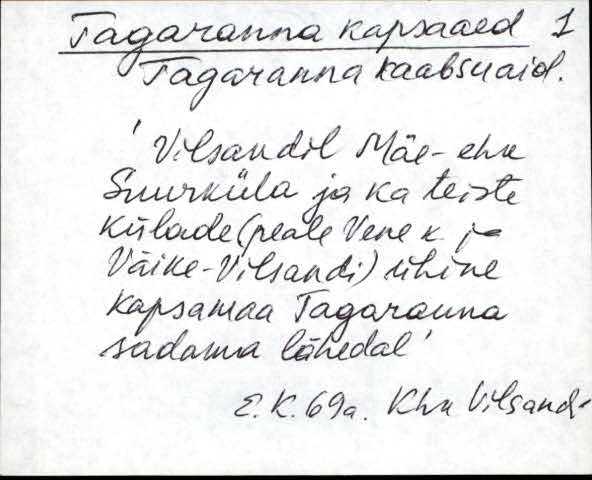 Tagaranna kapsaaed 1
Tagaranna kaabsuaid.
'Vilsandil Mäe- ehk
Suurküla ja ka teiste
külade (peale Vene k. ja
Väike-Vilsandi) ühine
kapsamaa Tagaranna
sadama lähedal'
E.K. 69a. Khk Vilsandi